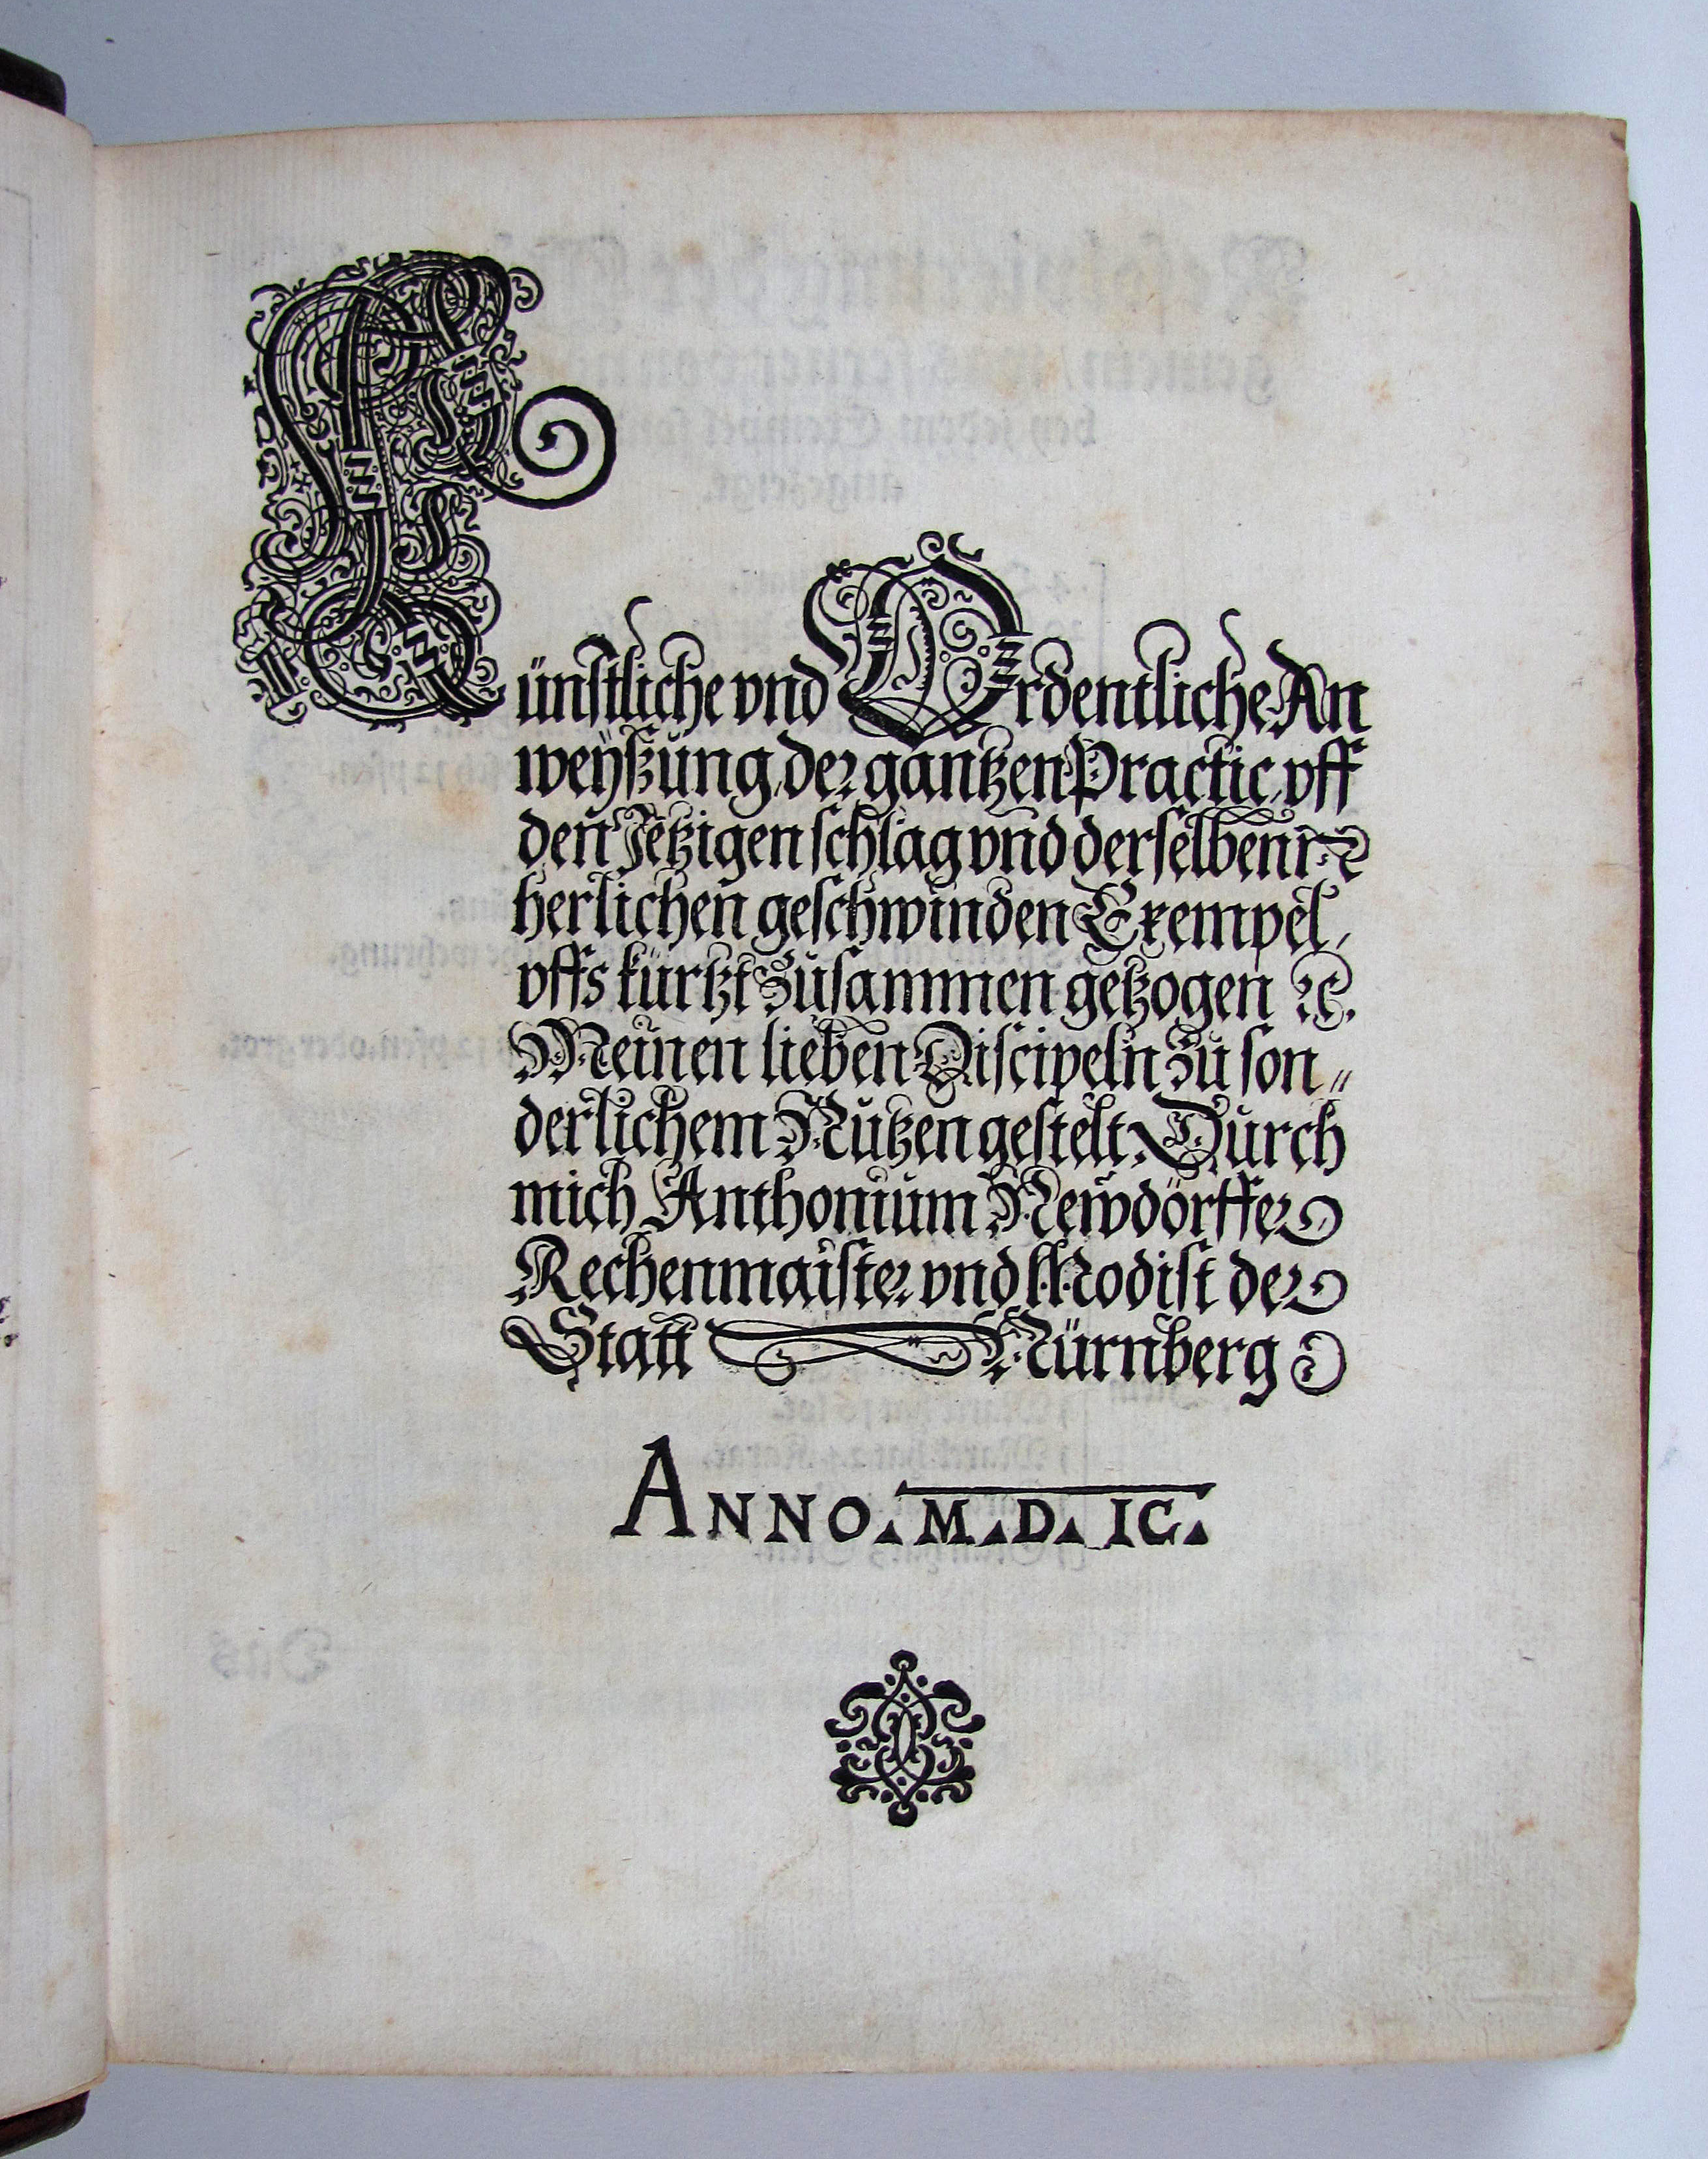 Künstliche vnd Ordentliche An
weyßung der gantzen Practic vff
den Jetzigen schlag vnd derselben
herlichen geschwinden Exempel,
vffs kürtzt Zusammen getzogen ꝛc.
Meinen lieben Discipeln zu son„
derlichem Nutzen gestelt. Durch
mich Anthonium Newdörffer
Rechenmaister vnd Modist der
Statt Nürnberg
ANNO. M. D. IC.